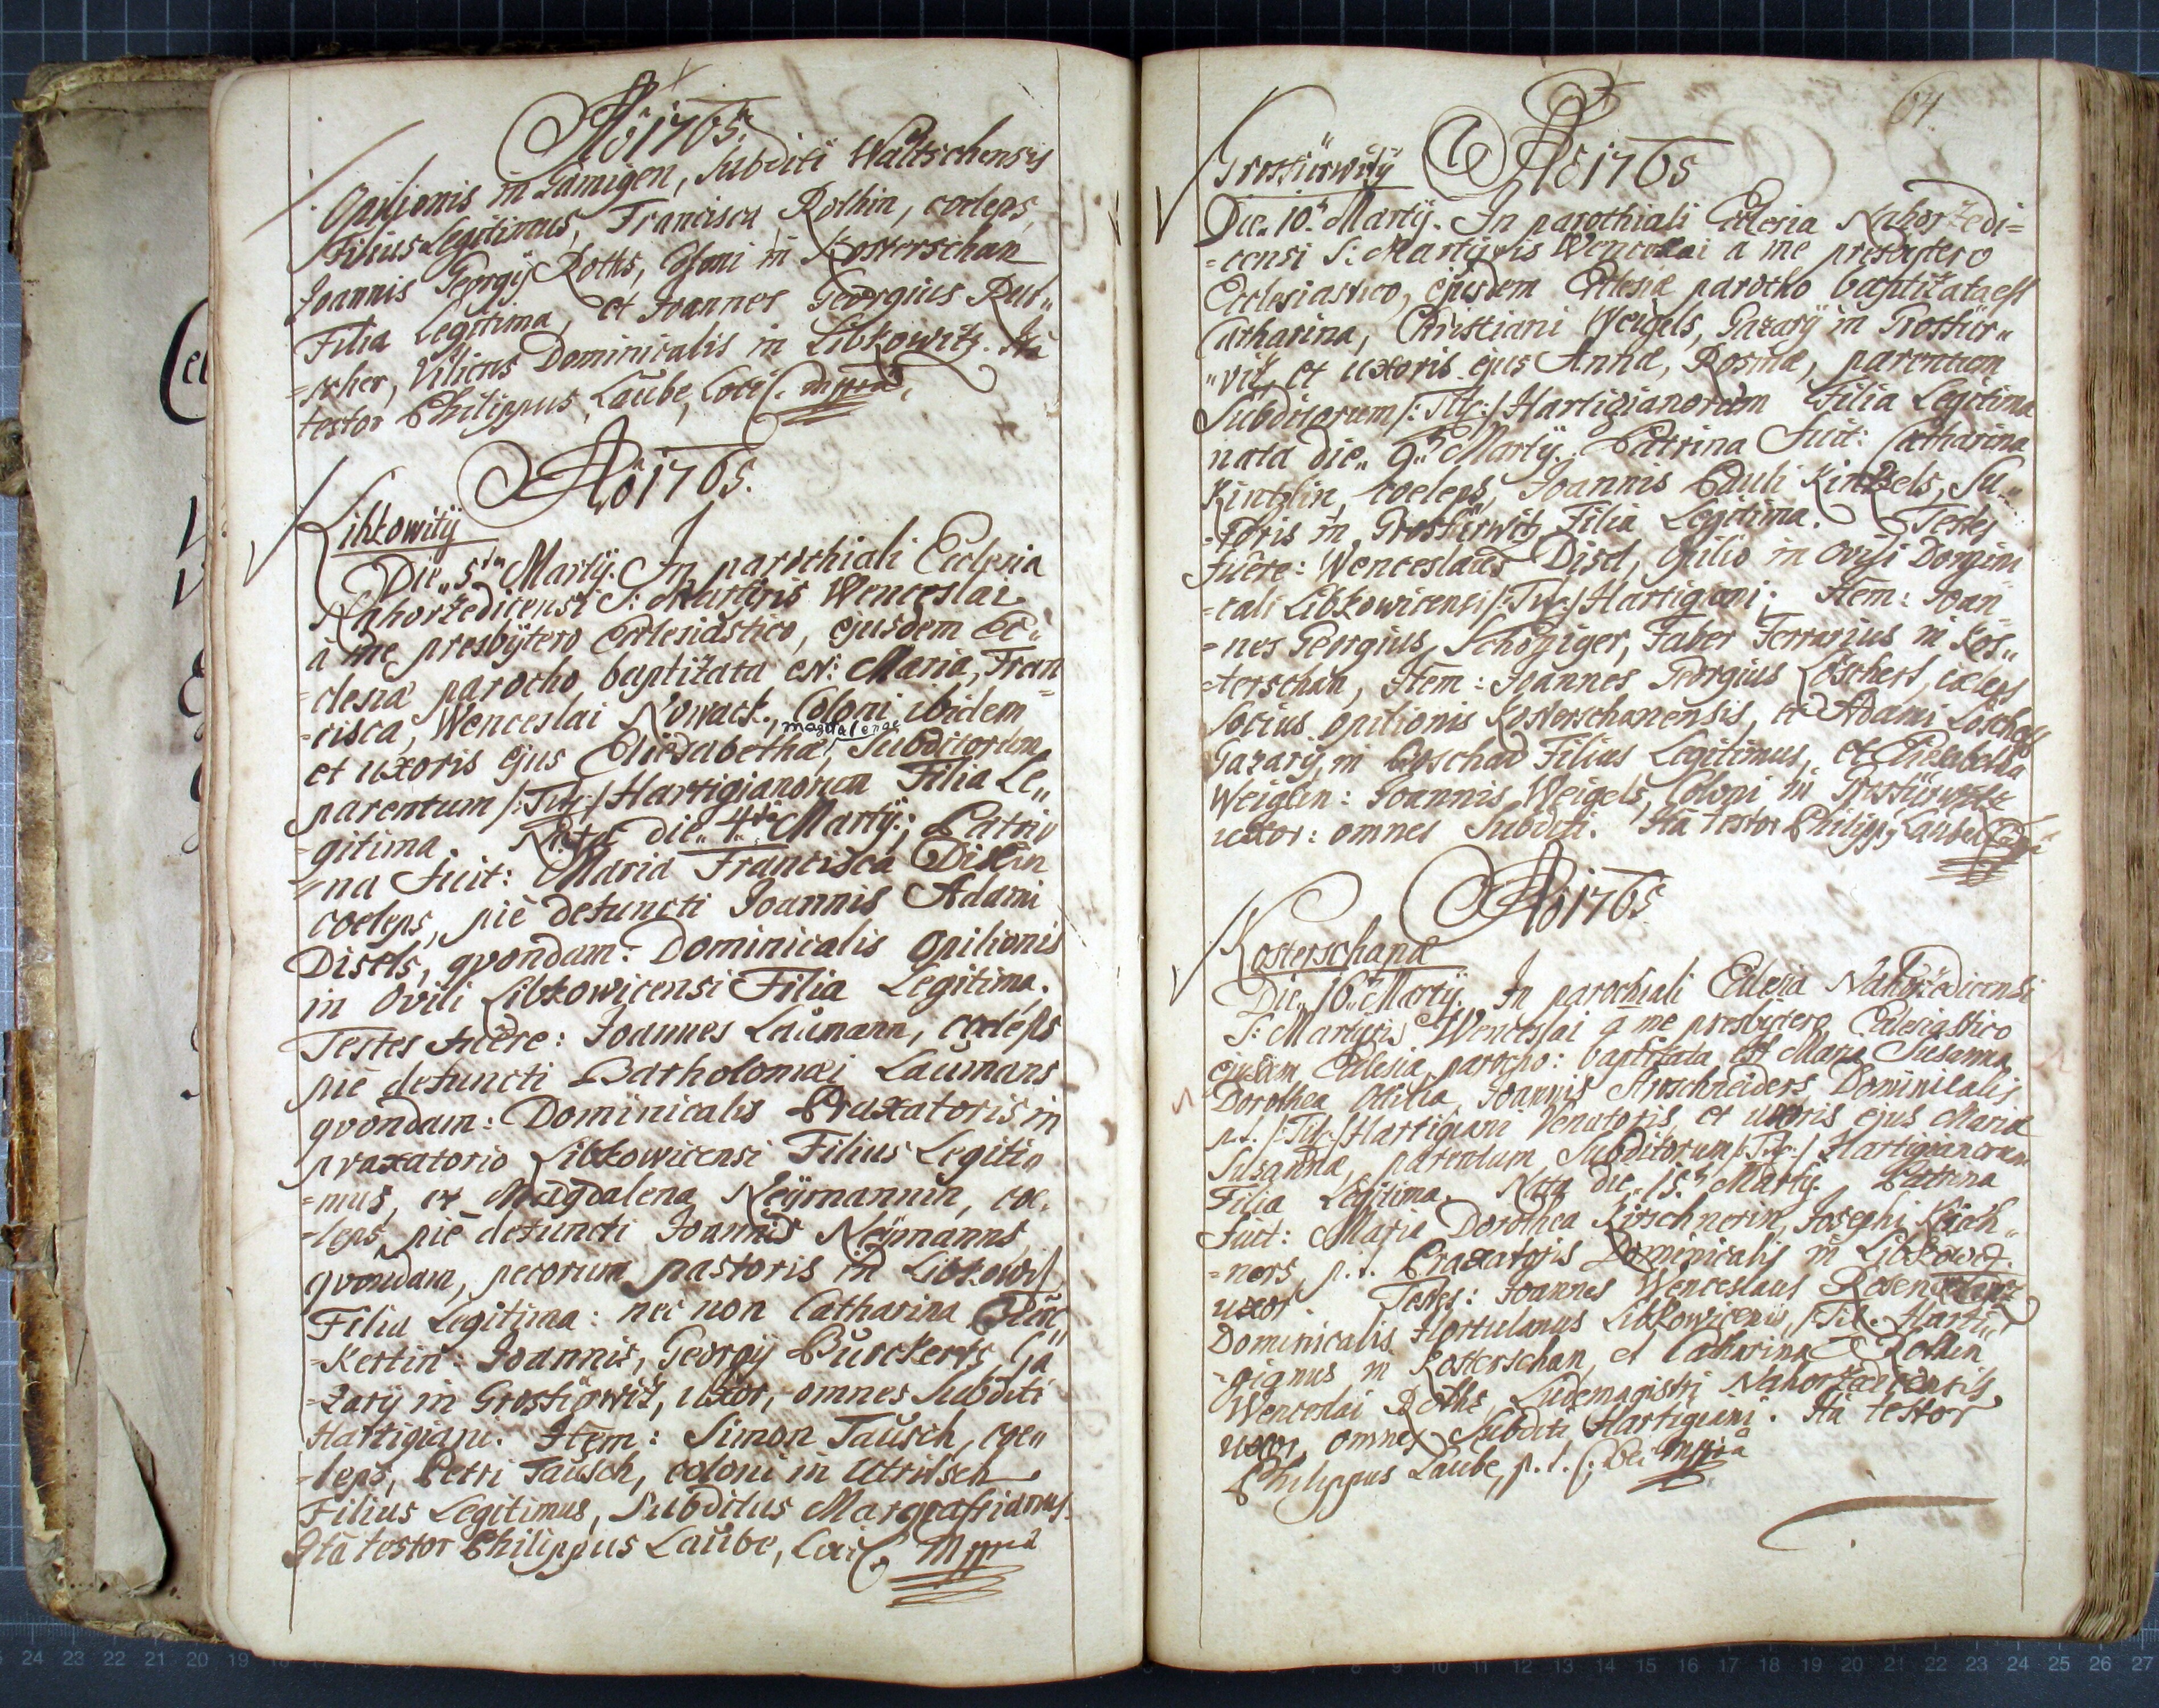 Aõ 1765.
Opilionis in Lamigen, Subditi Waltschensis
Filius Legitimus, Francisca Rothin, coeleps,
Joannis Georgij Roths, Coloni in Kosterschan
Filia Legitima, et Joannes Georgius Pur„
=scher, Vilicus Dominicalis in Libkowitz. Ità
testor Philippus Laube, Loci C. mppria.
Aõ 1765.
Libkowitij
Die„ 5ta Martij. In parochiali Ecclesia
Nahoržedicensi S: Martiris Wenceslai
à me presbÿtero Ecclesiastico, ejusdem Ec=
=clesiæ parocho baptižata est: Maria, Fran
=cisca, Wenceslai Nowack, Coloni ibidem
magdalenae
et uxoris ejus Eliesabethæ, Subditorum
parentum /:Tit:/ Hartigianorum Filia Le„
=gitima. Nata die„ 4ta Martij.; Patri„
=na Fuit: Maria Francisca Dislin
coeleps, piè defuncti Joannis Adami
Disels, qvondam: Dominicalis Opilionis
in Ovili Libkowicensi Filia Legitima.
Testes Fuêre: Joannes Laumann, coeleps
piè defuncti Bartholomæi Laumans
qvondam: Dominicalis Praxatoris in
praxatorio Libkowicensi Filius Legiti„
=mus, et Magdalena Neÿmannin, coe„
=leps, piè defuncti Joannis Neÿmanns,
qvondam, pecorum pastoris in Libkowitz
Filia Legitima: nec non Catharina Pur„
=kertin: Joannis, Georgij Purckerts, Ga
=zarij in Grostürwiž, uxor, omnes Subditi
Hartigiani. Item: Simon Tausch, coe„
=leps, Petri Tausch, coloni in Utritsch
Filius Legitimus, Subditus Margrafsianus.
Ità testor Philippus Laube, Loci C. Mppria
64
Grostürwitij Aõ 1765
Die„ 10ª Martij. In parochiali Ecclesia Nahoržedi=
=censi S: Martijris Wenceslai a me presbytero
Ecclesiastico, ejusdem Ecclesiæ parocho baptižata est
Catharina, Christiani Weigels, Gazarij in Grostür„
„viž, et uxoris ejus Annæ, Rosinæ, parentum
Subditorum /:Tit:/ Hartigianorum Filia Legitima
nata die„ 9ª Martij. Patrina Fuit: Catharina
Kintzlin, coeleps, Joannis Pauli Kintzels, Su„
=toris in Grostürwitz Filia Legitima. Testes
fuêre: Wenceslaus Disel, Opilio in Ovili Domini
=cali Libkowicensi /:Tit:/ Hartigiani; Item: Joan=
=nes Georgius, Faber Ferrarius in Kos„
=terschan, Item: Joannes Georgius Löscherl, cœleps
Socius Opilionis Kosterschanensis, et Adami Löscherls
Gazarij in Filius Legitimus, et Eliesabetha
Weiglin: Joannis Weigels, Coloni in Grostürwitz
uxor: omnes Subditi. Ità testor Philippus Laube
Aõ 1765
Kosterschanæ
Die„ 16ª Martij. In parochiali Ecclesia Nahoržedicensi
S: Martyris Wenceslai a me presbytero Ecclesiastico
ejusdem Ecclesiæ parocho: baptižata est Maria Susanna
Dorothea Joannis Dominicalis
p.t. /:Tit:/ Hartigiani Venatoris, et uxoris ejus Mariæ
Susannæ, parentum, Subditorum /:Tit:/ Hartigianorum
Filia Legitima. Nata die„ 15ª Martij. Patrina
Fuit: Maria Dorothea Kirschnerin, Josephi Kirsch„
=ners, p.t. Praxatoris Dominicalis in Libkowitz.
uxor. Testes: Joannes Wenceslaus
Dominicalis Hortulanus Libkowicensis, /:Tit. Harti„
=gianus in Kosterschan, et Catharina Rothin
Wenceslai Roths, Ludimagistri Nahoržedicensis
uxor, omnes Subditi Hartigiani. Ità testor
Philippus Laube, p.t. C: Loci mppria